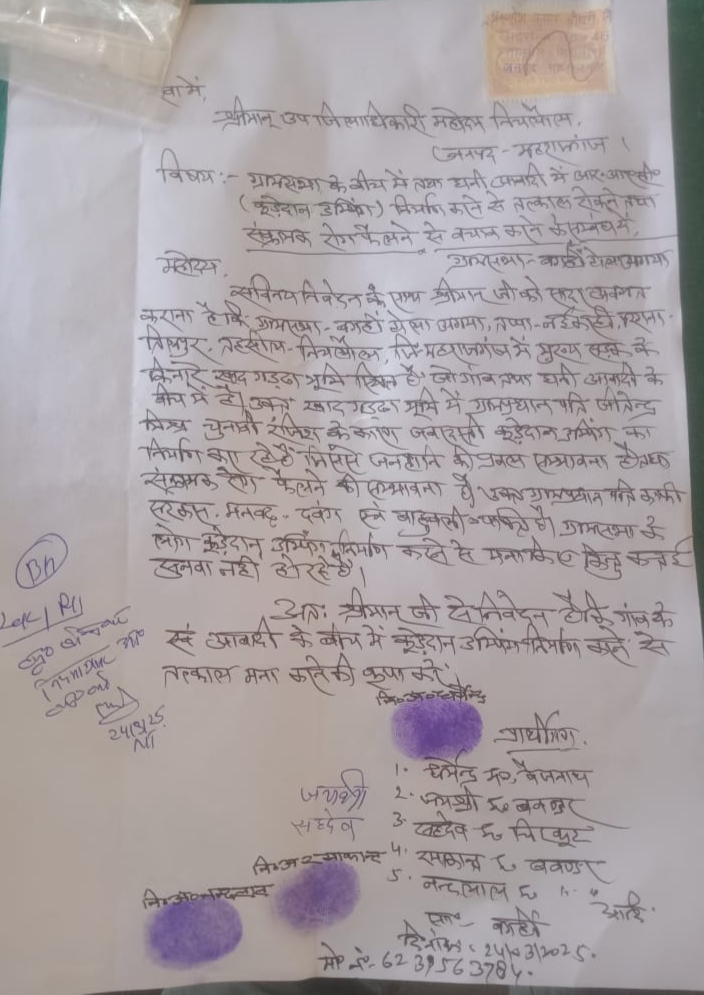 सेवा में,
श्रीमान् उप जिलाधिकारी महोदय निचलौल,
जनपद - महराजगंज ।
विषय :- ग्रामसभा के बीच में तथा घनी आबादी में आर.आर.सी०
(कूड़ेदान डम्पिंग) निर्माण करने से तत्काल रोकने तथा
संक्रामक रोग फैलने से बचाव करने के सम्बंध में,
महोदय, ग्रामसभा - बकहीं
सविनय निवेदन के साथ श्रीमान् जी को सादर अवगत
कराना है कि ग्रामसभा - बकहीं
तहसील - निचलौल, जि० महराजगंज में मुख्य सड़क के
किनारे, खाद गड्ढा भूमि स्थित है जो गांव तथा घनी आबादी के
बीच में है। उक्त खाद गड्ढा भूमि में ग्रामप्रधान पति जीतेन्द्र
मिश्र चुनावी रंजिश के कारण जबरदस्ती कूड़ेदान डम्पिंग का
निर्माण करा रहे हैं जिससे जनहानि की प्रबल सम्भावना है तथा
संक्रामक रोग फैलने की सम्भावना है। उक्त ग्रामप्रधान पति काफी
सरकस, मनबढ़, दबंग एवं बाहुबली व्यक्ति है। ग्रामसभा के
लोग कूड़ेदान डम्पिंग निर्माण करने से मना किए किन्तु कतई
सुनवा नहीं हो रहे हैं।
अतः श्रीमान् जी से निवेदन है कि गांव के
एवं आबादी के बीच में कूड़ेदान डम्पिंग निर्माण करने से
तत्काल मना करने की कृपा करें।
नि०अ० धर्मेन्द्र
प्रार्थीगण
1. धर्मेन्द्र S/o बैजनाथ
जयश्री 2. जयश्री S/o बवण्डर
सहदेव 3. सहदेव S/o चिरकुट
नि०अ० रमाकान्त 4. रमाकान्त S/o बवण्डर
नि०अ० नन्दलाल 5. नन्दलाल S/o " " आदि
ग्राम - बकहीं
दिनांक : 24/03/2025.
मो० नं० - 6239563784.
24/3/25